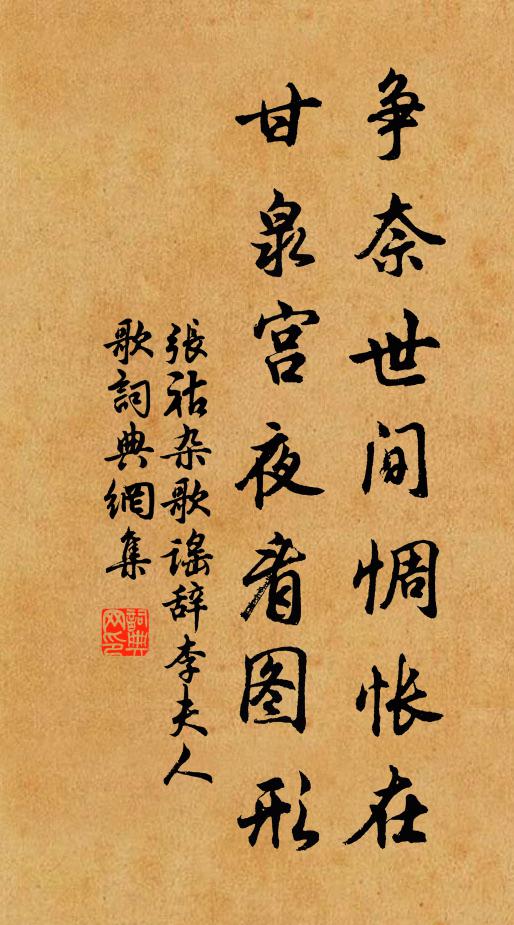 争奈世间惆怅在
甘泉宫夜看图形
張祜杂歌謡辞李夫人
歌詞典網集
詞典
网印